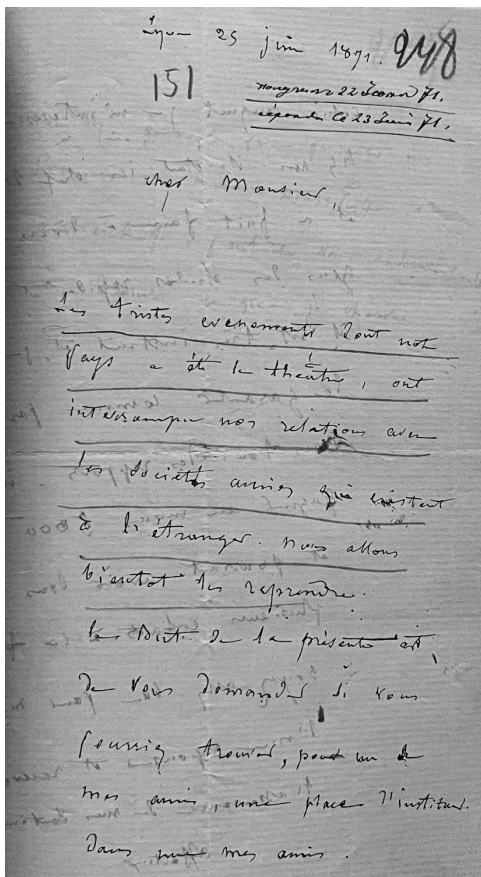 Lyon 25 juin 1871.
248
151
22 71.
répondu le 23 Juin 71.
cher Monsieur,
Les tristes evenements dont notre
pays a été le théatre, ont
interrompu nos relations avec
les sociétés amies qui existent
à l'étranger. nous allons
bientot les reprendre.
Le but de la présente est
de vous demander si vous
pourriez trouver, pour un de
mes amis, une place d'instituteur.
Dans mes amis.